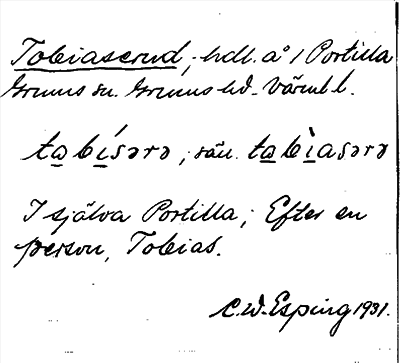 Tobiaserud, hdl. a° 1 Portilla
Grums sn. Grums hd. Värml l.
tabísərə; sän. tabìasərə
I själva Portilla; Efter en
person, Tobias.
C.W. Esping 1931.